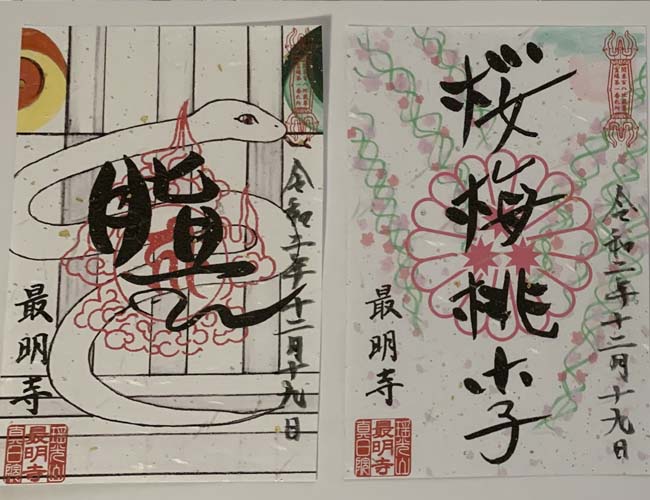 令和二年十二月十九日
最明寺
最明寺
令和二年十二月十九日
桜梅桃李
最明寺
最明寺